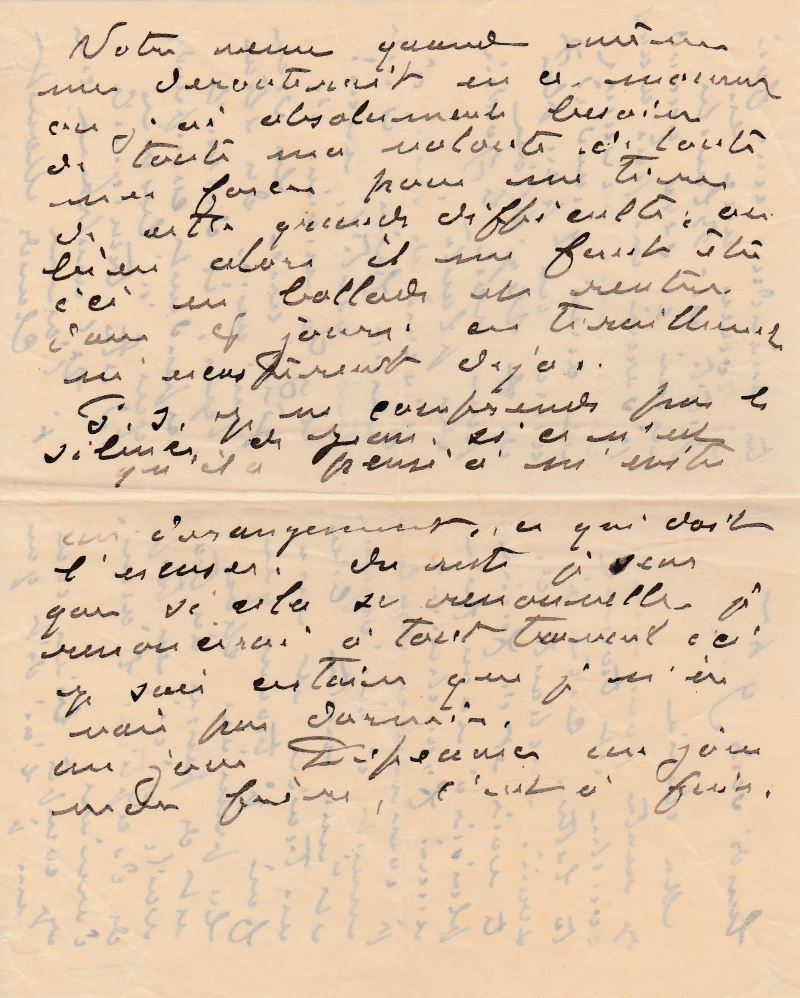 Votre venue quand même
me derouterait en ce moment
ou j'ai absolument besoin
de toute ma volonte et toute
mes forces pour me tirer
de cette grande difficulte, ou
bien alors il me faut être
ici en ballade et rentrer
dans 8 jours. ces tiraillements
m'
deja.
je ne comprends pas le
silence de Jean, si ce n'est
qu'il a pensé à m'eviter
un derangement, ce qui doit
l'excuser. du reste je sens
que si cela se renouvelle je
renoncerai à tout travail ici
je suis certain que je n'en
un jour Depeaux un jour
mon frère, c'est à fuir.